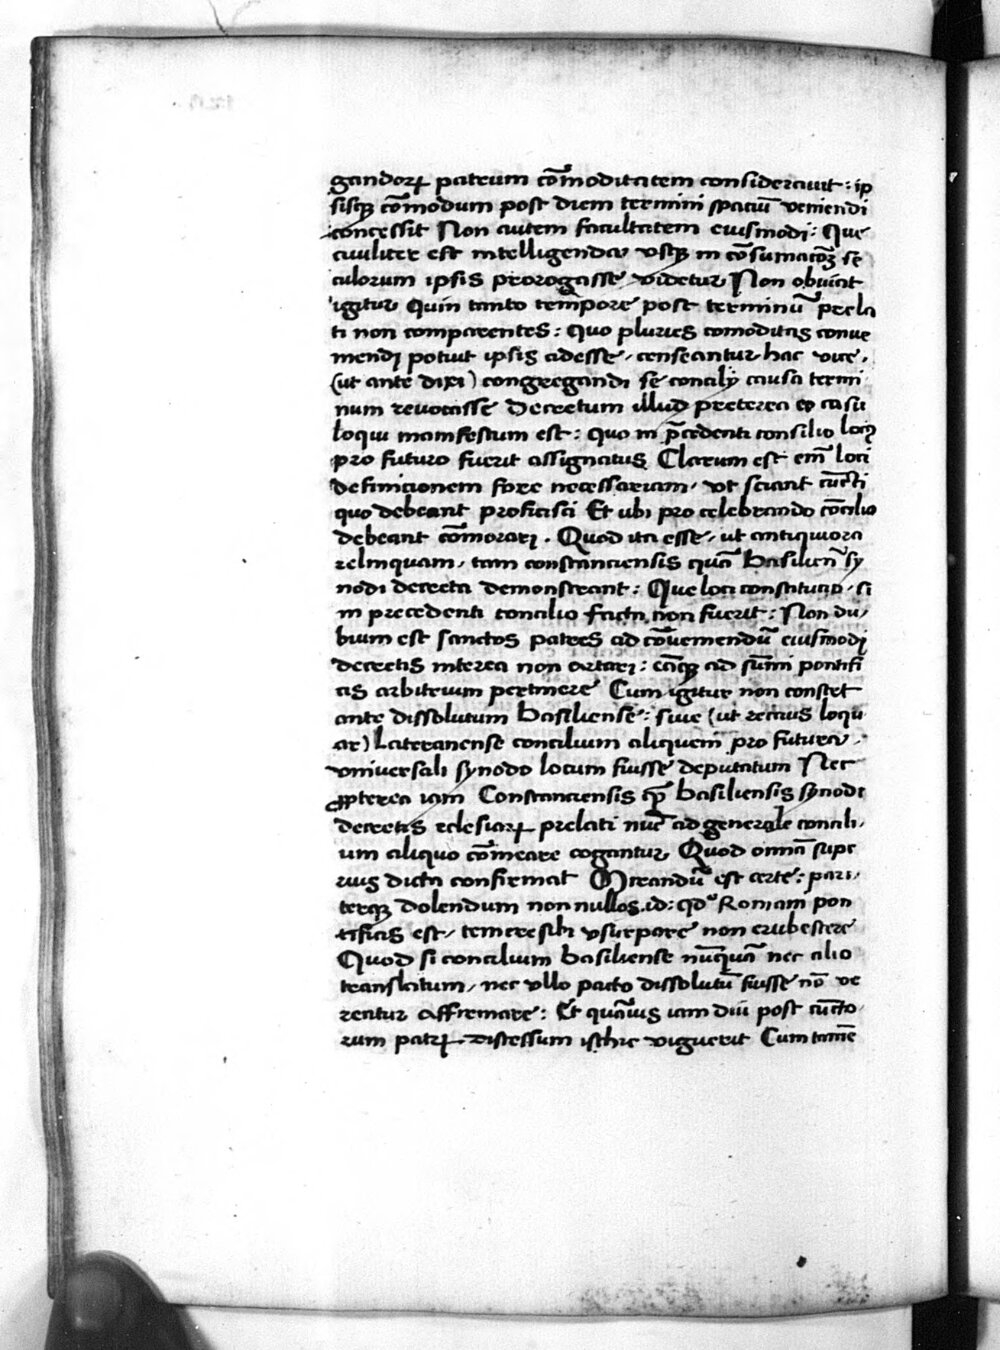 gandoꝝ patrum cōmoditatem considerauit : ip
sisqꝫ cōmodum post diem termini spaciū veniendi
concessit Non autem facultatem eiusmodi : Que
ciuiliter est intelligenda vsqꝫ in cōsumacōꝫ se
culorum ipsis prorogasse videtur Non obuiat
igitur Quin tanto tempore post terminū prela
ti non comparentes : Quo pluries comoditas conue
niendj potuit ipsis adesse / censeantur hac vice .
(ut ante dixi) congregandi se concilij causa termi
num reuocasse Decretum illud preterea eo casu
loqui manifestum est : quo in p̄cedenti consilio locꝰ
pro futuro fuerit assignatus Clarum est em̄ loci
definicionem fore necessariam / vt sciant cūcti
quo debeant proficisci Et ubi pro celebrando cōcilio
debeant cōmorarj . Quod ita esse / ut antiquiora
relinquam / tam constanciensis quā Basilien̄ sy
nodi decreta demonstrant : Que loci constitucio / si
in precedenti concilio facta non fuerit : Non du/
bium est sanctos patres ad cōueniendū eiusmodj
decretis interea non artarj : eamqꝫ ad sūmi pontifi
cis arbitrium pertinere Cum igitur non constet
ante dissolutum Basiliense : siue (ut rectius loqu
ar) Lateranense concilium aliquem pro futura .
vniuersali synodo locum fuisse deputatum Nec
ꝓpterea iam Constanciensis qꝫ Basiliensis synodi
decretis eclesiaꝝ prelati nūc ad generale concili/
um aliquo cōmeare cogantur Quod omīa supe
rius dicta confirmat Mirandū est certe : pari/
terqꝫ dolendum non nullos id : qd' Romani pon
tificis est / temere sibi vsurpare non erubescere
Quod si concilium basiliense nūquā nec alio
translatum / nec vllo pacto dissolutū fuisse nō ve
rentur affirmare : Et quāuis iam diu post cūcto/
rum patrꝫ discessum isthic viguerit Cum tamē